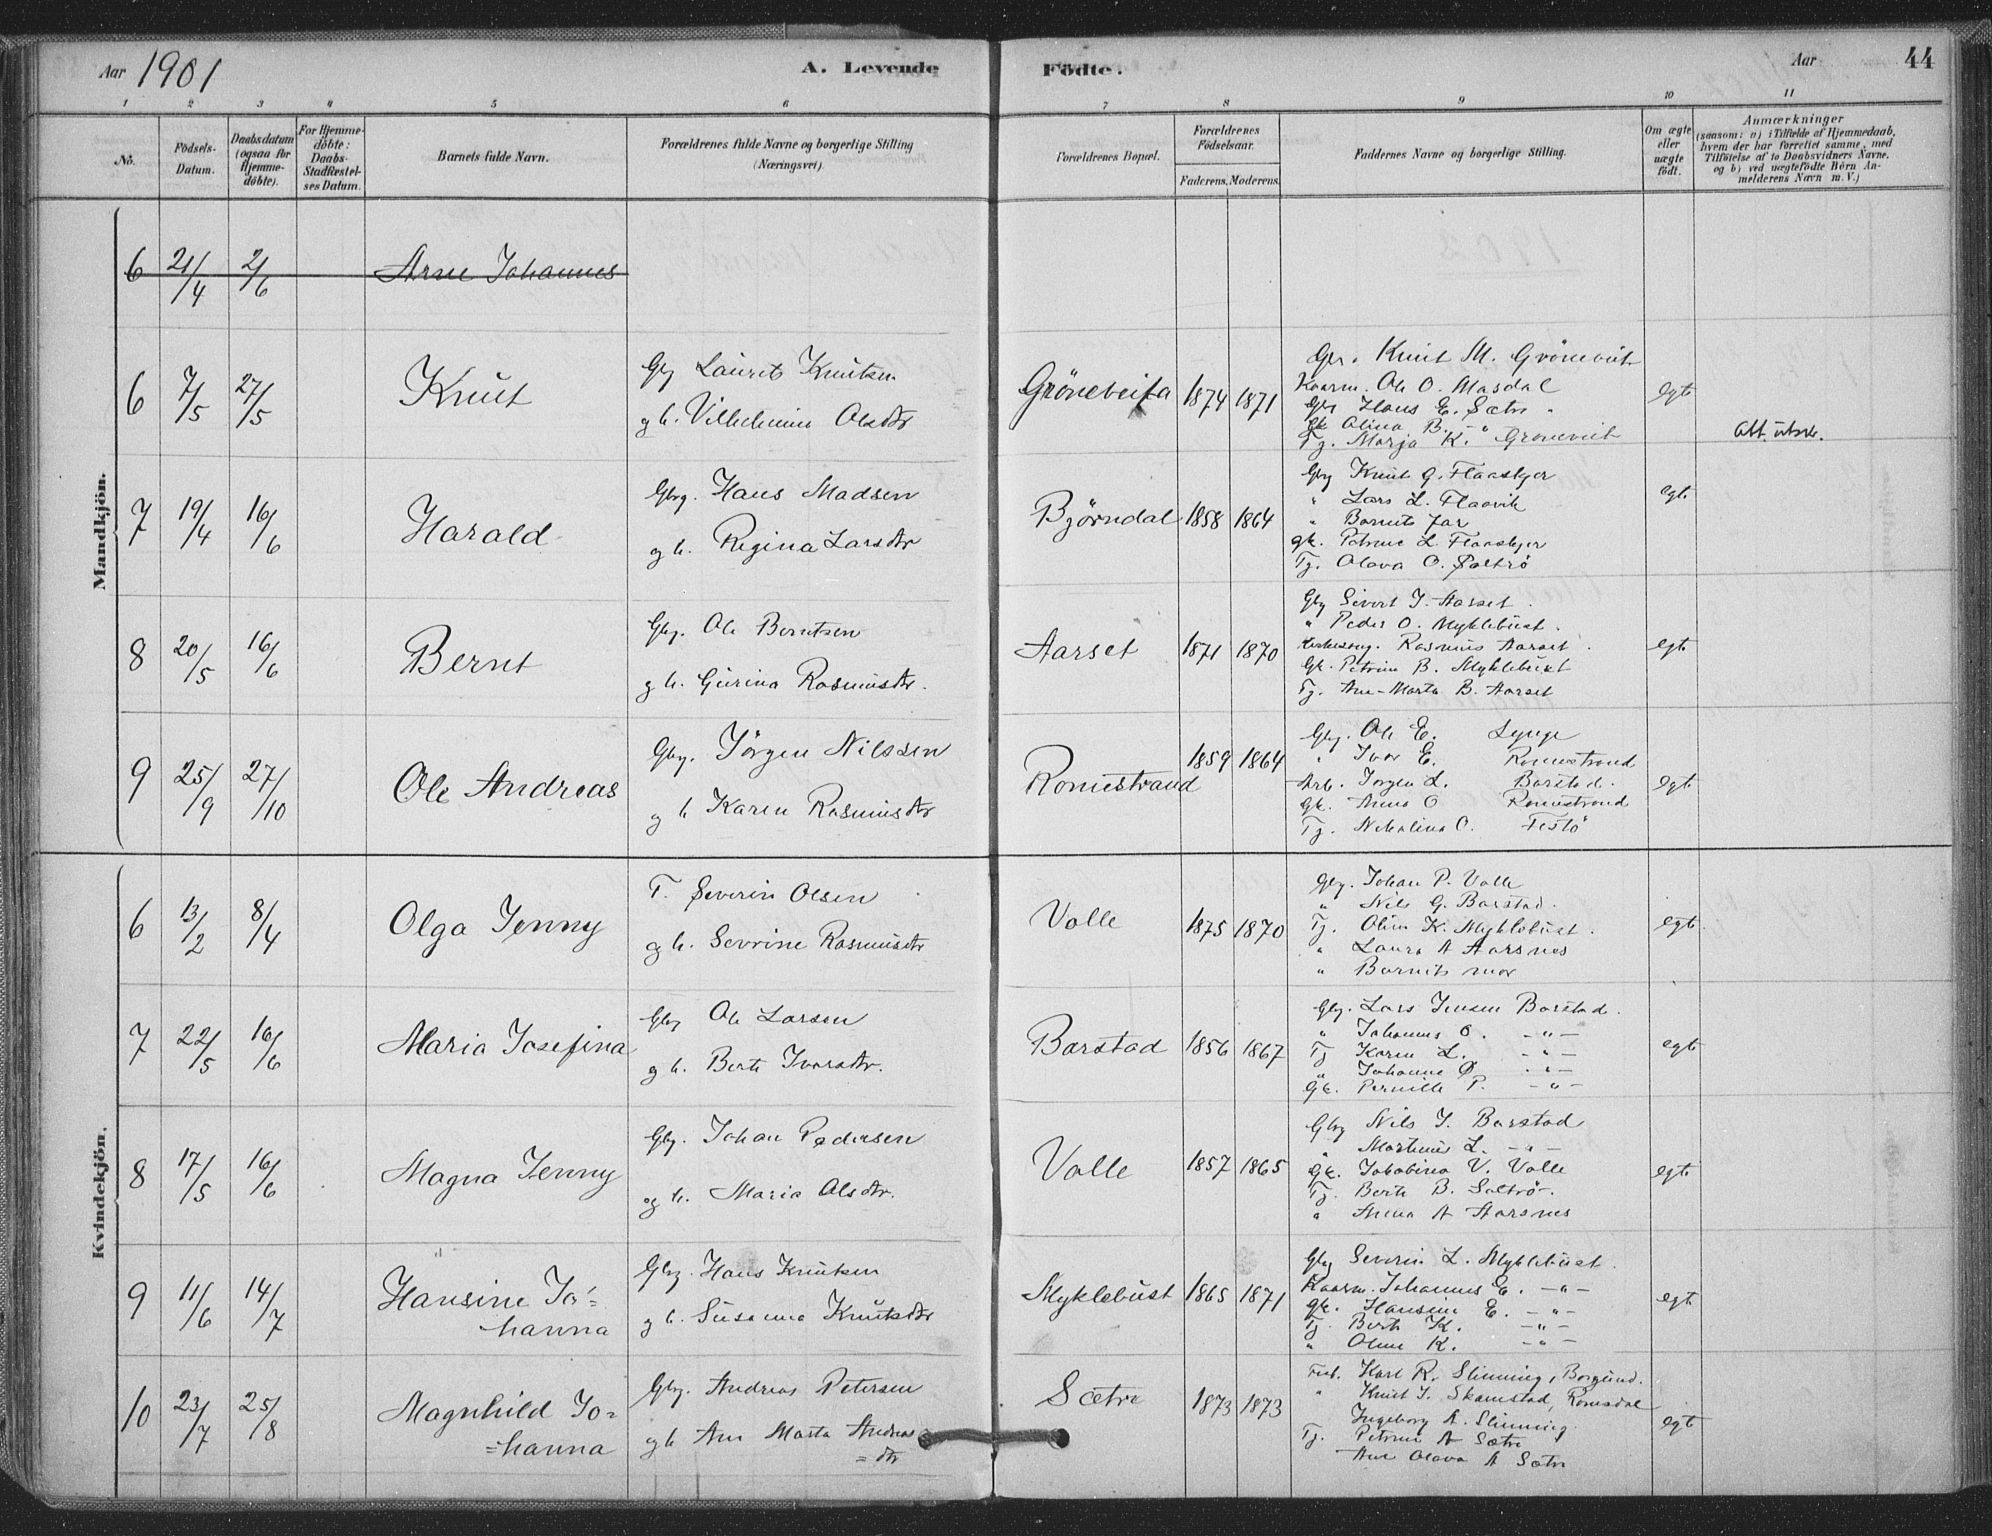 Aar 1901 A. Levende Födte. Aar 44
1 2 3 4 5 6 7 8 9 10 11
No.
Födsels-Datum.
Daabsdatum (ogsaa for Hjemme-döbte).
For Hjemme-döbte: Daabs-Stadfæstel-ses Datum.
Barnets fulde Navn.
Forældrenes fulde Navne og borgerlige Stilling (Næringsvei).
Forældrenes Bopæl.
Forældrenes Födselsaar.
Faderens. Moderens.
Faddernes Navne og borgerlige Stilling.
Om ægte eller uægte födt.
Anmærkninger
(saasom: a) i Tilfælde af Hjemmedaab,
hvem der har forrettet samme, med
Tilföielse af to Daabsvidners Navne.
og b) ved uægtefödte Börn An-
melderens Navn m. V.)
Mandkjön.
6 21/4 2/6 Arne Johannes
6 7/5 27/5 Knut
Gbr Laurits Knutsen
og h. Vilhelmine Olsdtr
Gröneveita 1874 1871
Gbr. Knut M. Gröneveit
Kaarm. Ole O. Masdal
Gbr Hans E. Sætre
Gk Alina B. "
Tj. Marja K. Groneveit
egte
Att. utsk.
7 19/4 16/6 Harald
Gbrg. Hans Madsen
og h. Regina Larsdtr
Björndal 1858 1864
Gbrg Knut G. Flaaskjer
" Lars L. Flaavik
" Barnets far
gk. Petrine L. Flaaskjer
Tj. Olava O. Sæltrö
egte
8 20/5 16/6 Bernt
Gbg. Ole Berntsen
og h. Gurina Rasmusdtr.
Aarset 1871 1870
Gbg Sivert J. Aarset.
" Peder O. Myklebust.
Kirkesang. Rasmus Aarset.
Gk. Petrine B. Myklebust
Tj. Ane-Marta B. Aarset
egte
9 25/9 27/10 Ole Andreas
Gbg. Jörgen Nilssen
og h Karen Rasmusdtr
Romestrand 1859 1864
Gbg. Ole E. Lynge
" Ivar E. Romestrand
Arb. Jorgen L. Barstad.
Gk. Anna O Romestrand
Tj. Nikoline O. Festö
egte
Kvindekjön.
6 13/2 8/4 Olga Jenny
T. Severin Olsen
og h. Sevrine Rasmusdtr
Valle 1875 1870
Gbg. Johan P. Valle
" Nils G. Barstad.
Tj. Oline K. Myklebust.
" Laura A Aarsnes
" Barnets mor
egte.
7 22/5 16/6 Maria Josefina
Gbg Ole Larsen
og h. Berte Ivarsdtr.
Barstad 1856 1867
Gbg. Lars Jensen Barstad.
" Johannes O. -"-
Tj Karen L. -"-
" Johanne O. -"-
Gk. Pernille P. -"-
egte
8 17/5 16/6 Magna Jenny
Gbg. Johan Pedersen
og h. Maria Olsdtr.
Valle 1857 1865
Gbg Nils J. Barstad
" Martinus L. -"-
Gk. Jakobina V. Valle
Tj. Berte B. Saltrö.
" Anna A Aarsnes
egte
9 11/6 14/7 Hansine Jo=
hanna
Gbg. Hans Knutsen
og h. Susanna Knutsdtr
Myklebust 1865 1871
Gbg Severin L. Myklebust.
Kaarm. Johannes E. -"-
Gk. Hansine E. -"-
Tj. Berte K. -"-
" Oline K. -"-
egte
10 23/7 25/8 Magnhild Jo=
=hanna
Gbg. Andreas Petersen
og h Ane Marta Andreas
=dtr
Sætre 1873 1873
Karl R. Slinning, Borgund.
" Knut J. Skamstad, Romsdal
Ingeborg A. Slinning
Tj. Petrine A Sætre
Ane Olava A Sætre
egte